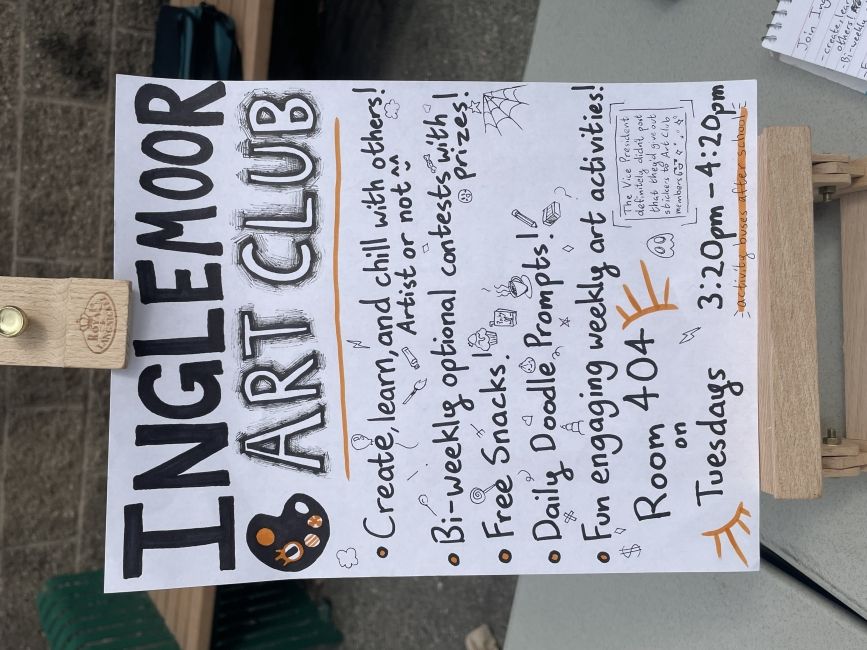 INGLEMOOR
ART CLUB
• Create, learn, and chill with others!
Artist or not ^^
• Bi-weekly optional contests with
prizes!
• Free Snacks!
• Daily Doodle Prompts!
• Fun engaging weekly art activities!
Room 404
on
Tuesdays
3:20pm - 4:20pm
activity buses after school
The Vice President
definitely didn't post
that they'd give out
stickers to Art Club
members
Join Ing
- create, lea
others!
- Bi-weekl
ROYAL